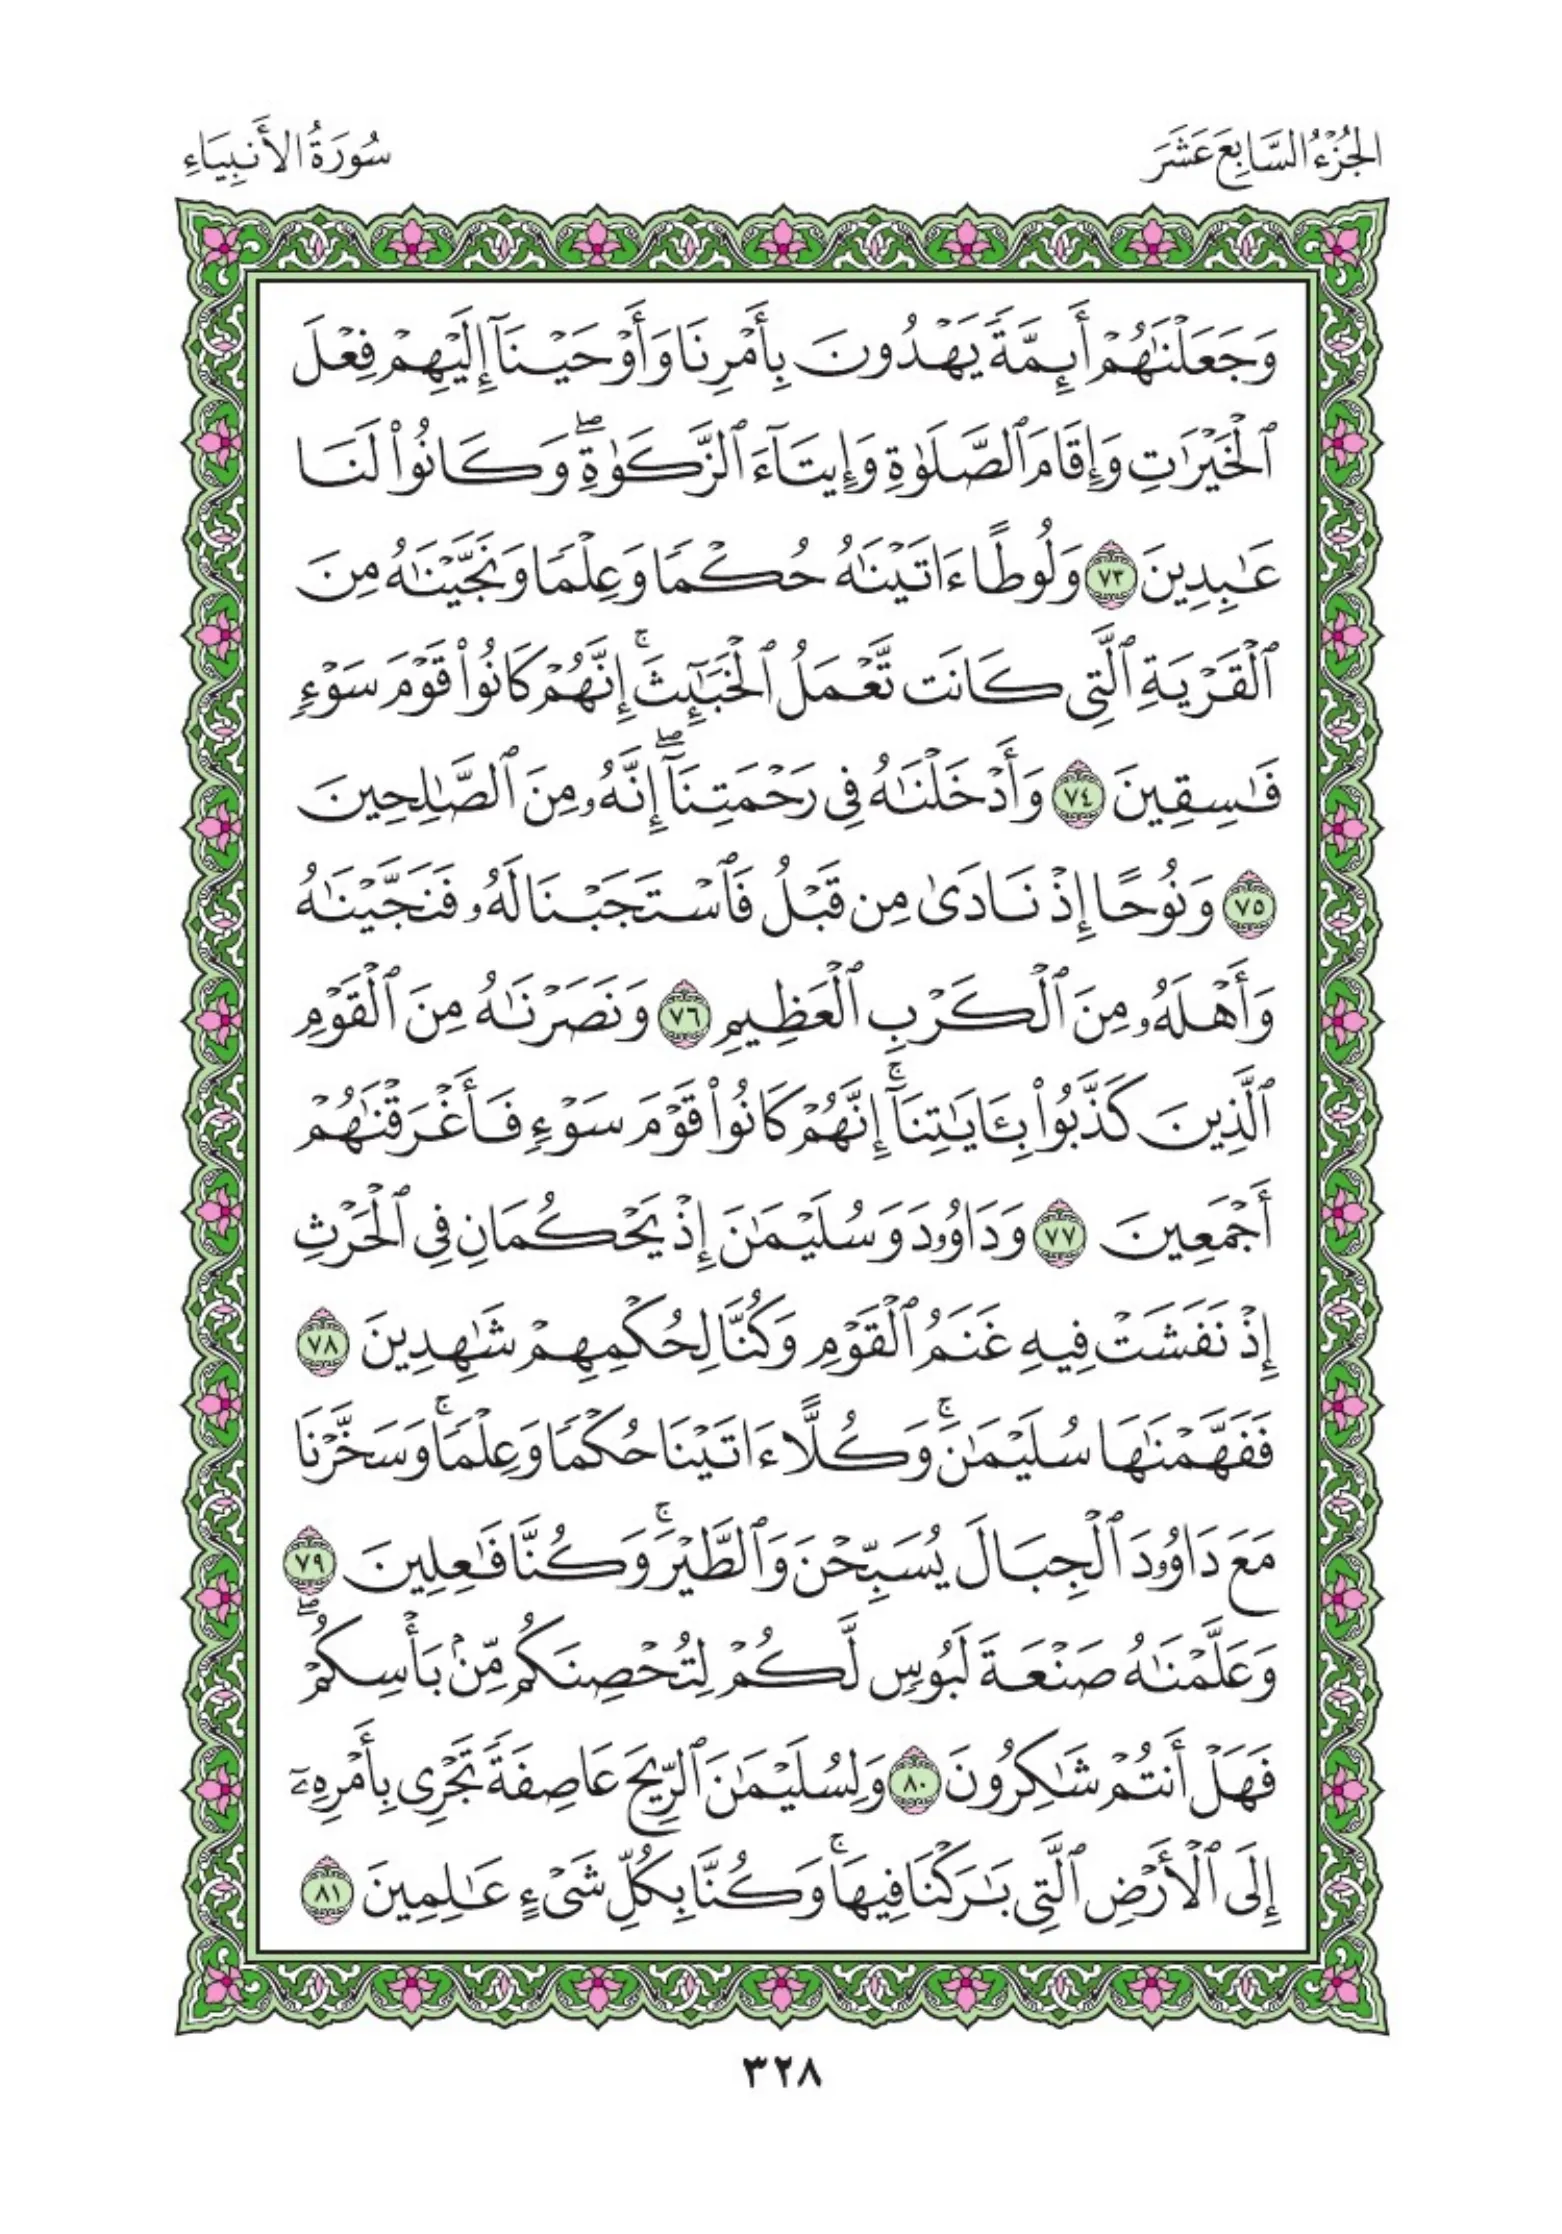 الجُزْءُ السَّابِعَ عَشَرَ
سُورَةُ الأَنبِيَاءِ
وَجَعَلْنَٰهُمْ أَئِمَّةً يَهْدُونَ بِأَمْرِنَا وَأَوْحَيْنَآ إِلَيْهِمْ فِعْلَ
ٱلْخَيْرَٰتِ وَإِقَامَ ٱلصَّلَوٰةِ وَإِيتَآءَ ٱلزَّكَوٰةِ ۖ وَكَانُوا۟ لَنَا
عَٰبِدِينَ ٧٣ وَلُوطًا ءَاتَيْنَٰهُ حُكْمًا وَعِلْمًا وَنَجَّيْنَٰهُ مِنَ
ٱلْقَرْيَةِ ٱلَّتِى كَانَت تَّعْمَلُ ٱلْخَبَٰٓئِثَ ۚ إِنَّهُمْ كَانُوا۟ قَوْمَ سَوْءٍ
فَٰسِقِينَ ٧٤ وَأَدْخَلْنَٰهُ فِى رَحْمَتِنَآ ۖ إِنَّهُۥ مِنَ ٱلصَّٰلِحِينَ
٧٥ وَنُوحًا إِذْ نَادَىٰ مِن قَبْلُ فَٱسْتَجَبْنَا لَهُۥ فَنَجَّيْنَٰهُ
وَأَهْلَهُۥ مِنَ ٱلْكَرْبِ ٱلْعَظِيمِ ٧٦ وَنَصَرْنَٰهُ مِنَ ٱلْقَوْمِ
ٱلَّذِينَ كَذَّبُوا۟ بِـَٔايَٰتِنَآ ۚ إِنَّهُمْ كَانُوا۟ قَوْمَ سَوْءٍ فَأَغْرَقْنَٰهُمْ
أَجْمَعِينَ ٧٧ وَدَاوُۥدَ وَسُلَيْمَٰنَ إِذْ يَحْكُمَانِ فِى ٱلْحَرْثِ
إِذْ نَفَشَتْ فِيهِ غَنَمُ ٱلْقَوْمِ وَكُنَّا لِحُكْمِهِمْ شَٰهِدِينَ ٧٨
فَفَهَّمْنَٰهَا سُلَيْمَٰنَ ۚ وَكُلًّا ءَاتَيْنَا حُكْمًا وَعِلْمًا ۚ وَسَخَّرْنَا
مَعَ دَاوُۥدَ ٱلْجِبَالَ يُسَبِّحْنَ وَٱلطَّيْرَ ۚ وَكُنَّا فَٰعِلِينَ ٧٩
وَعَلَّمْنَٰهُ صَنْعَةَ لَبُوسٍ لَّكُمْ لِتُحْصِنَكُم مِّنۢ بَأْسِكُمْ ۖ
فَهَلْ أَنتُمْ شَٰكِرُونَ ٨٠ وَلِسُلَيْمَٰنَ ٱلرِّيحَ عَاصِفَةً تَجْرِى بِأَمْرِهِۦٓ
إِلَى ٱلْأَرْضِ ٱلَّتِى بَٰرَكْنَا فِيهَا ۚ وَكُنَّا بِكُلِّ شَىْءٍ عَٰلِمِينَ ٨١
٣٢٨